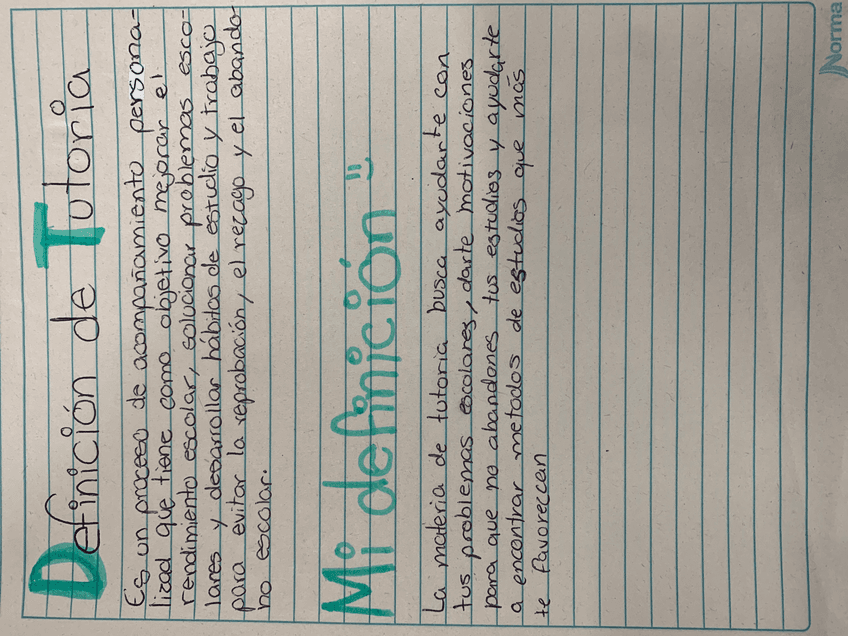 Definición de Tutoria
Es un proceso de acompañamiento persona-
lizad que tiene como objetivo mejorar el
rendimiento escolar, solucionar problemas esco-
lares y desarrollar hábitos de estudio y trabajo
para evitar la reprobación, el rezago y el abando-
no escolar.
Mi definición
La materia de tutoria busca ayudarte con
tus problemas escolares, darte motivaciones
para que no abandones tus estudios y ayudarte
a encontrar metodos de estudios que más
te favorezcan
Norma